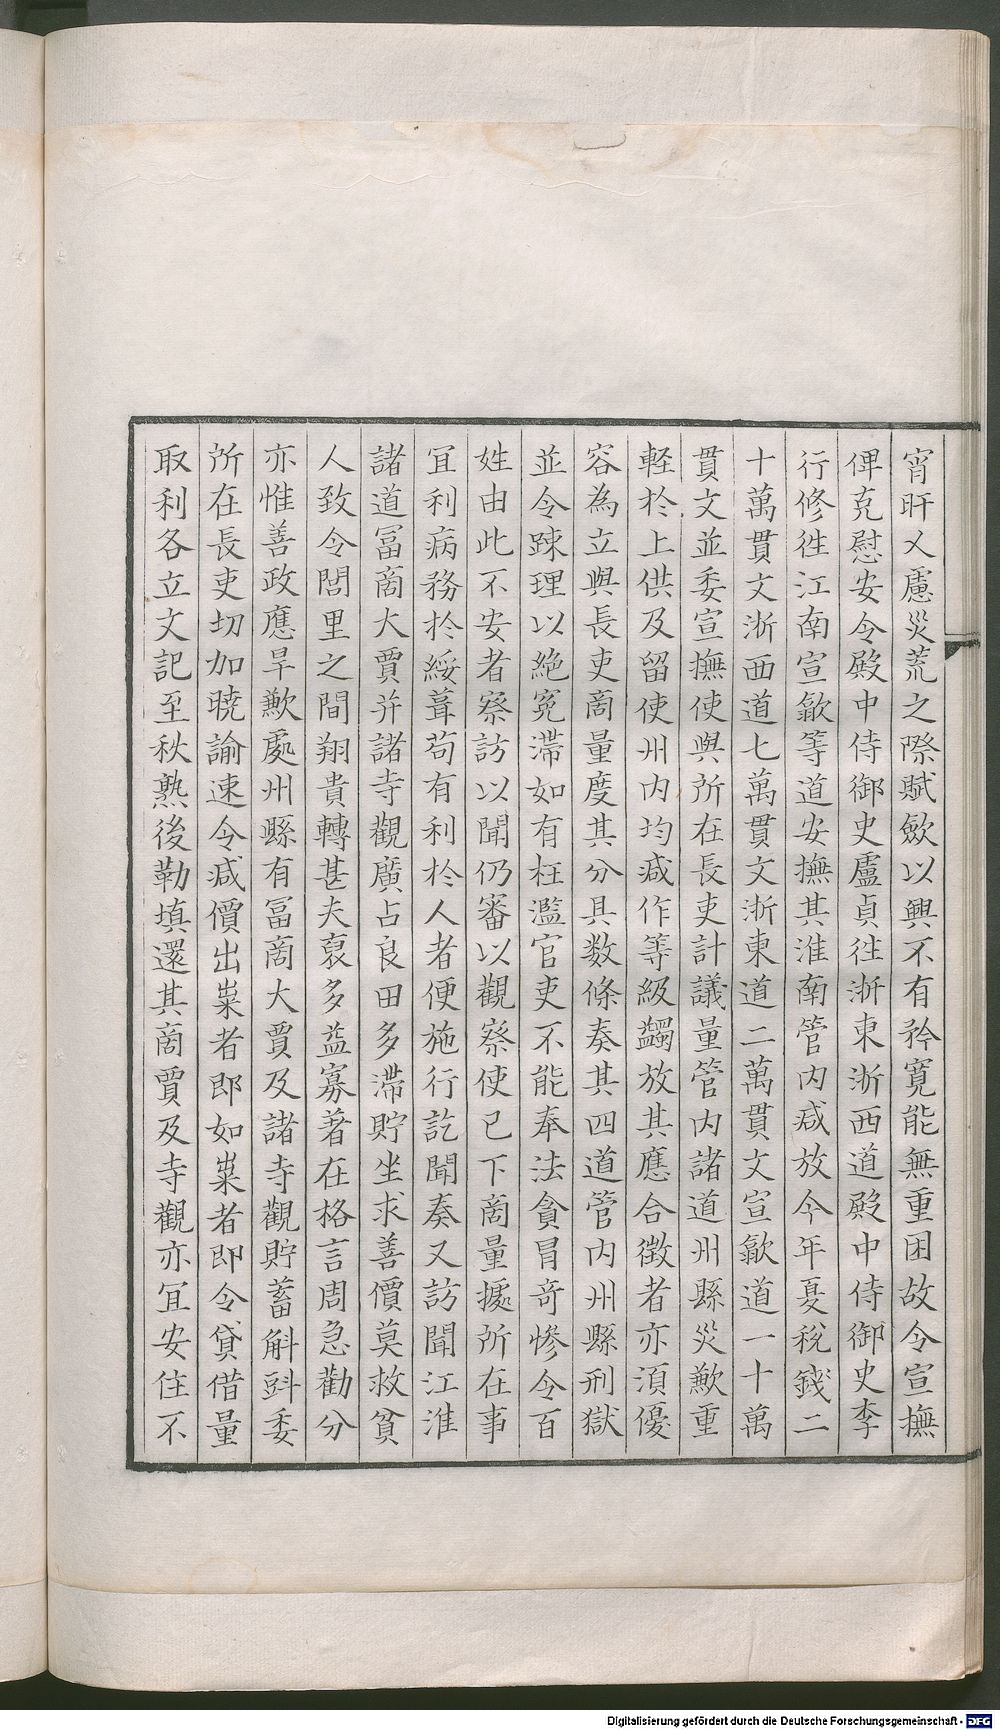 宵旰乂慮災荒之際賦斂以興不有矜寬能無重困故令宣撫
俾克慰安令殿中侍御史盧貞徃浙東浙西道殿中侍御史李
行修徃江南宣歙等道安撫其淮南管内减放今年夏稅錢二
十萬貫文浙西道七萬貫文浙東道二萬貫文宣歙道一十萬
貫文並委宣撫使與所在長吏計議量管内諸道州縣災歉重
輕於上供及留使州内均减作等級蠲放其應合徵者亦湏優
容為立與長吏啇量度其分具数條奏其四道管内州縣刑獄
並令踈理以絶冤滯如有枉濫官吏不能奉法貪冒竒慘令百
姓由此不安者察訪以聞仍審以觀察使已下啇量據所在事
冝利病務於綏葺苟有利於人者便施行訖聞奏又訪聞江淮
諸道冨啇大賈并諸寺觀廣占良田多滯貯坐求善價莫救貧
人致令閭里之間翔貴轉甚夫裒多益寡著在格言周急勸分
亦惟善政應旱歉處州縣有冨啇大賈及諸寺觀貯蓄斛㪷委
所在長吏切加曉諭速令减價出粜者即如粜者即令貸借量
取利各立文記至秋熟後勒填還其啇賈及寺觀亦冝安住不
Digitalisierung gefördert durch die Deutsche Forschungsgemeinschaft - DFG